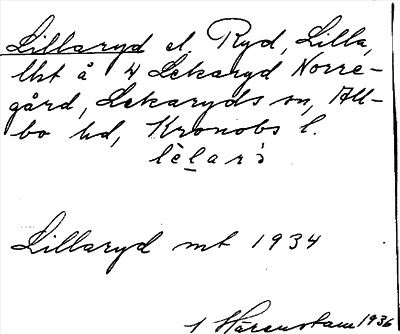 Lillaryd el. Ryd, Lilla,
lht å 4 Lekaryd Norre-
gård, Lekaryds sn, All-
bo hd, Kronobs l.
Lillaryd mt 1934
1936